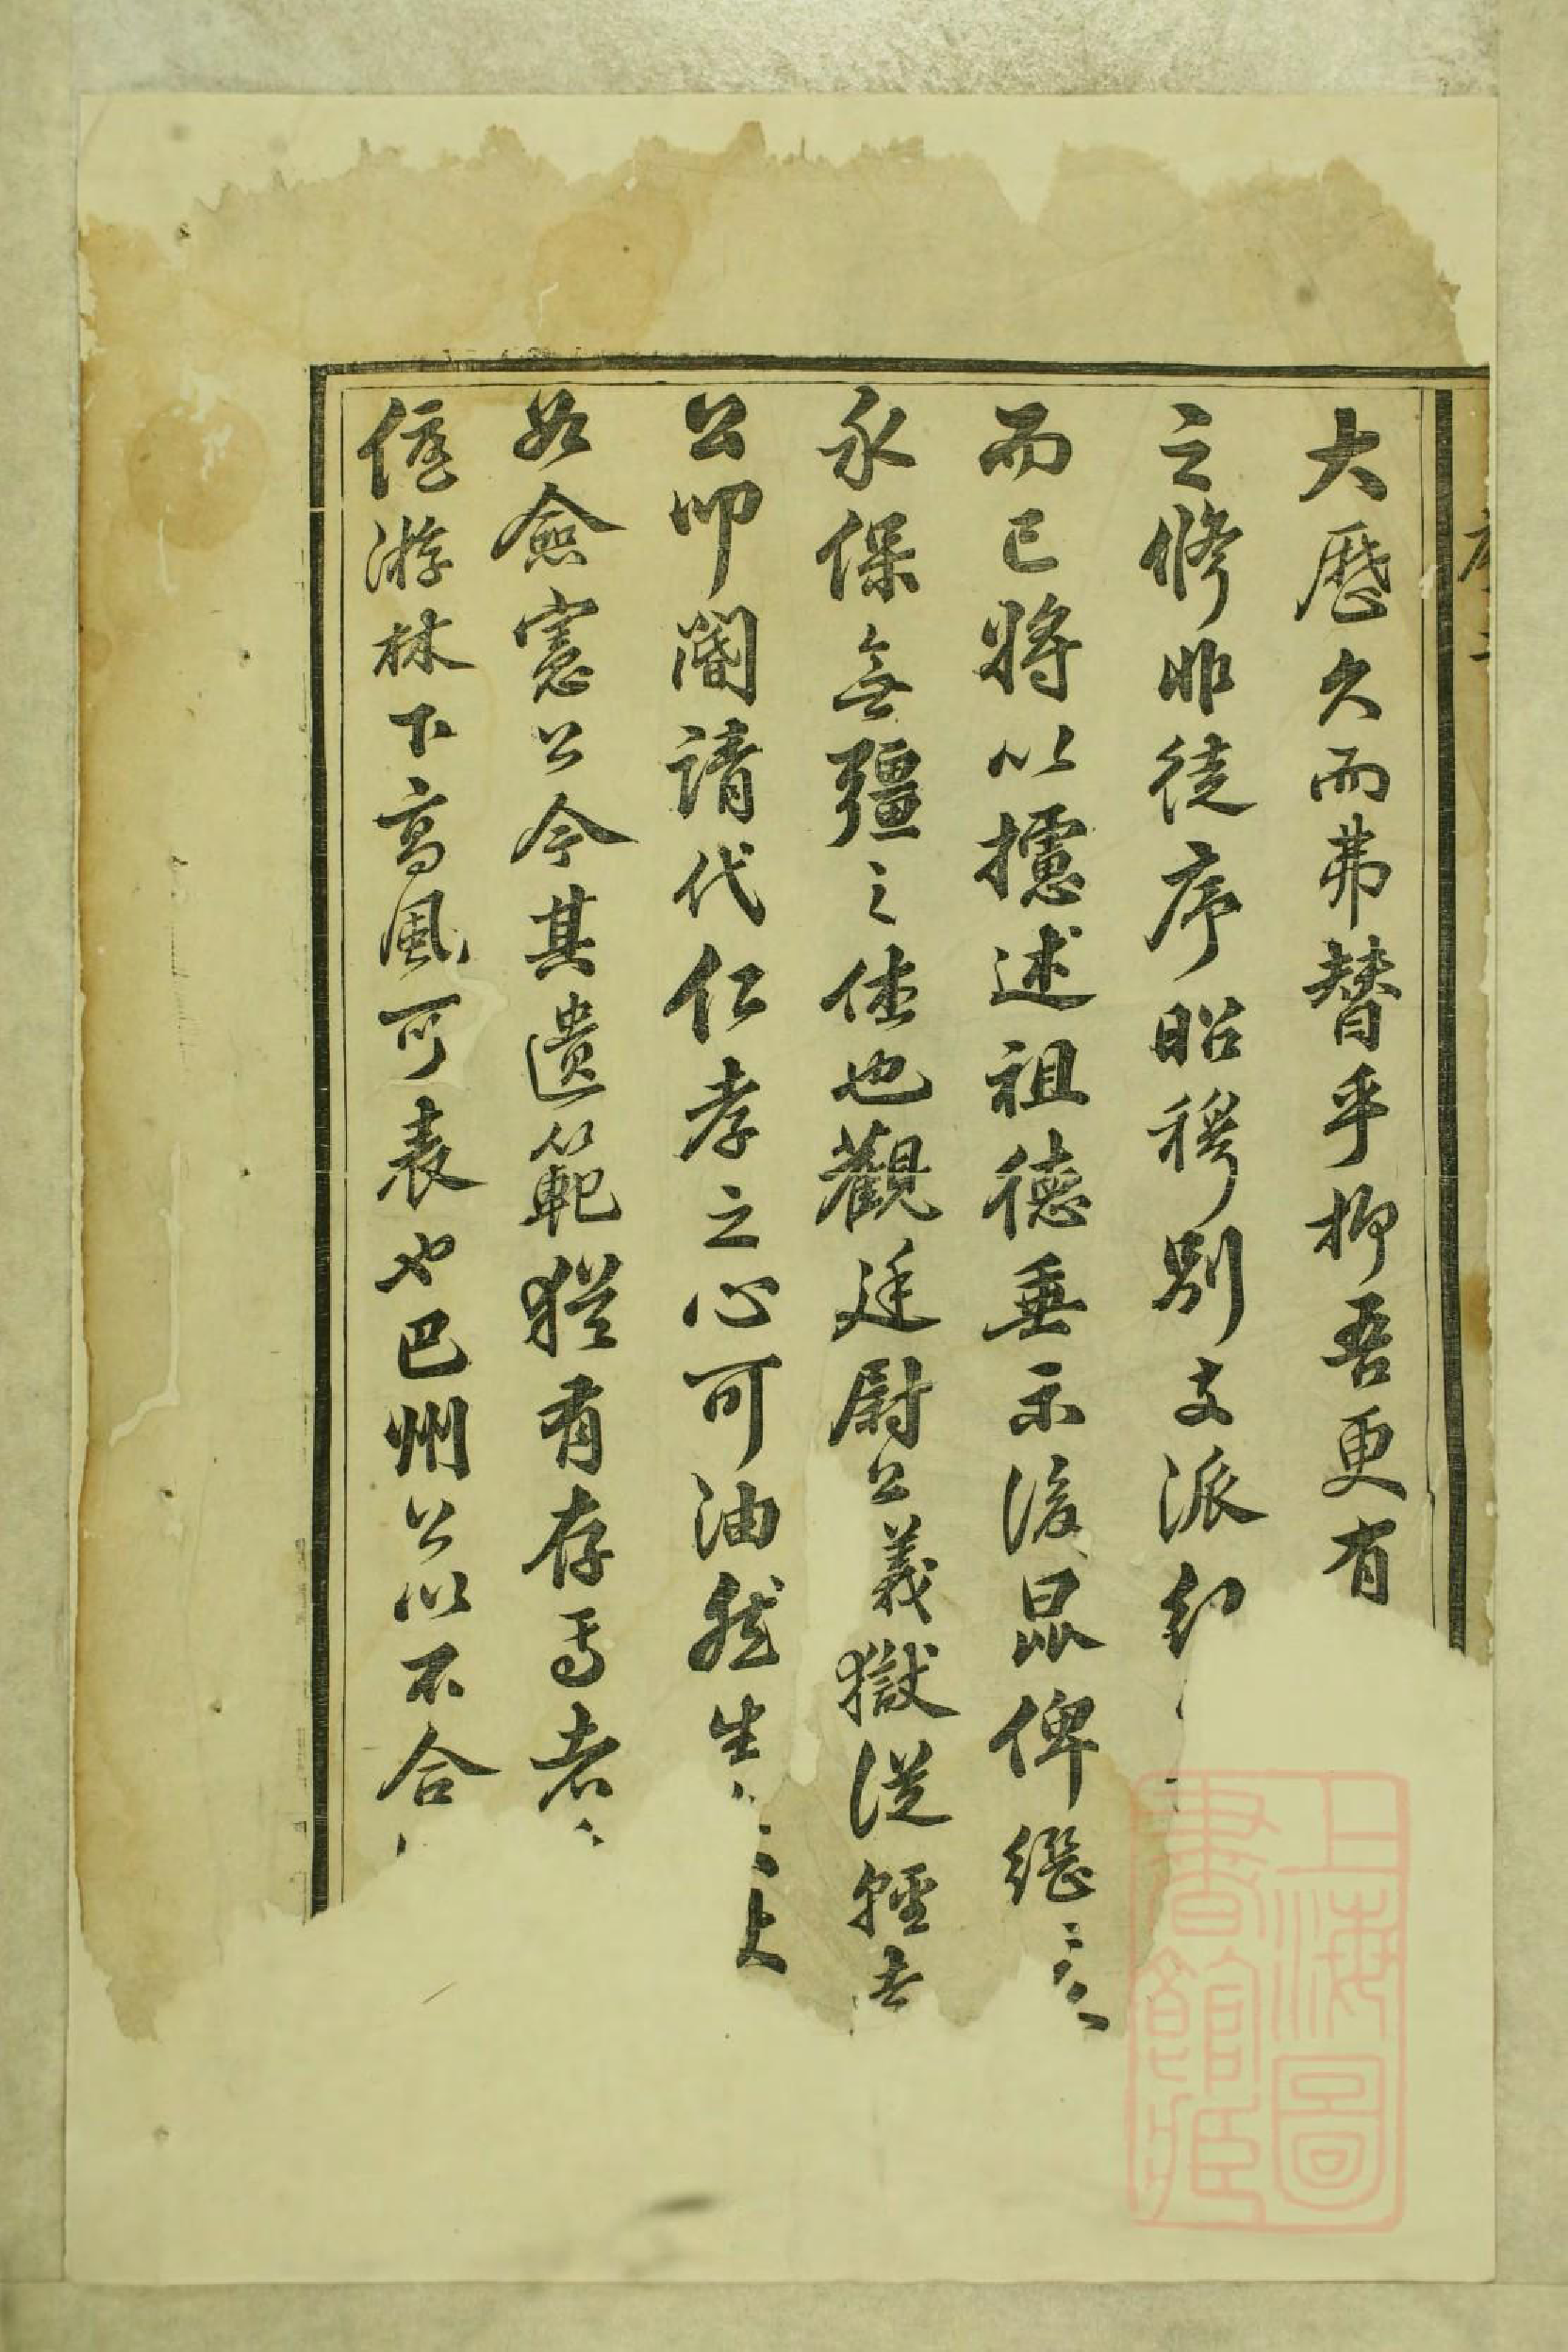 大歷久而弗替乎抑吾更有
之修非徒序昭穆別支派
而已將以攄述祖德垂示後昆俾繼
永保無疆之休也觀廷尉公義獄從輕
公叩閽請代仁孝之心可油然生
如僉憲公今其遺範猶有存焉者
優游林下高風可表也巴州公以不合
上海圖
書館藏